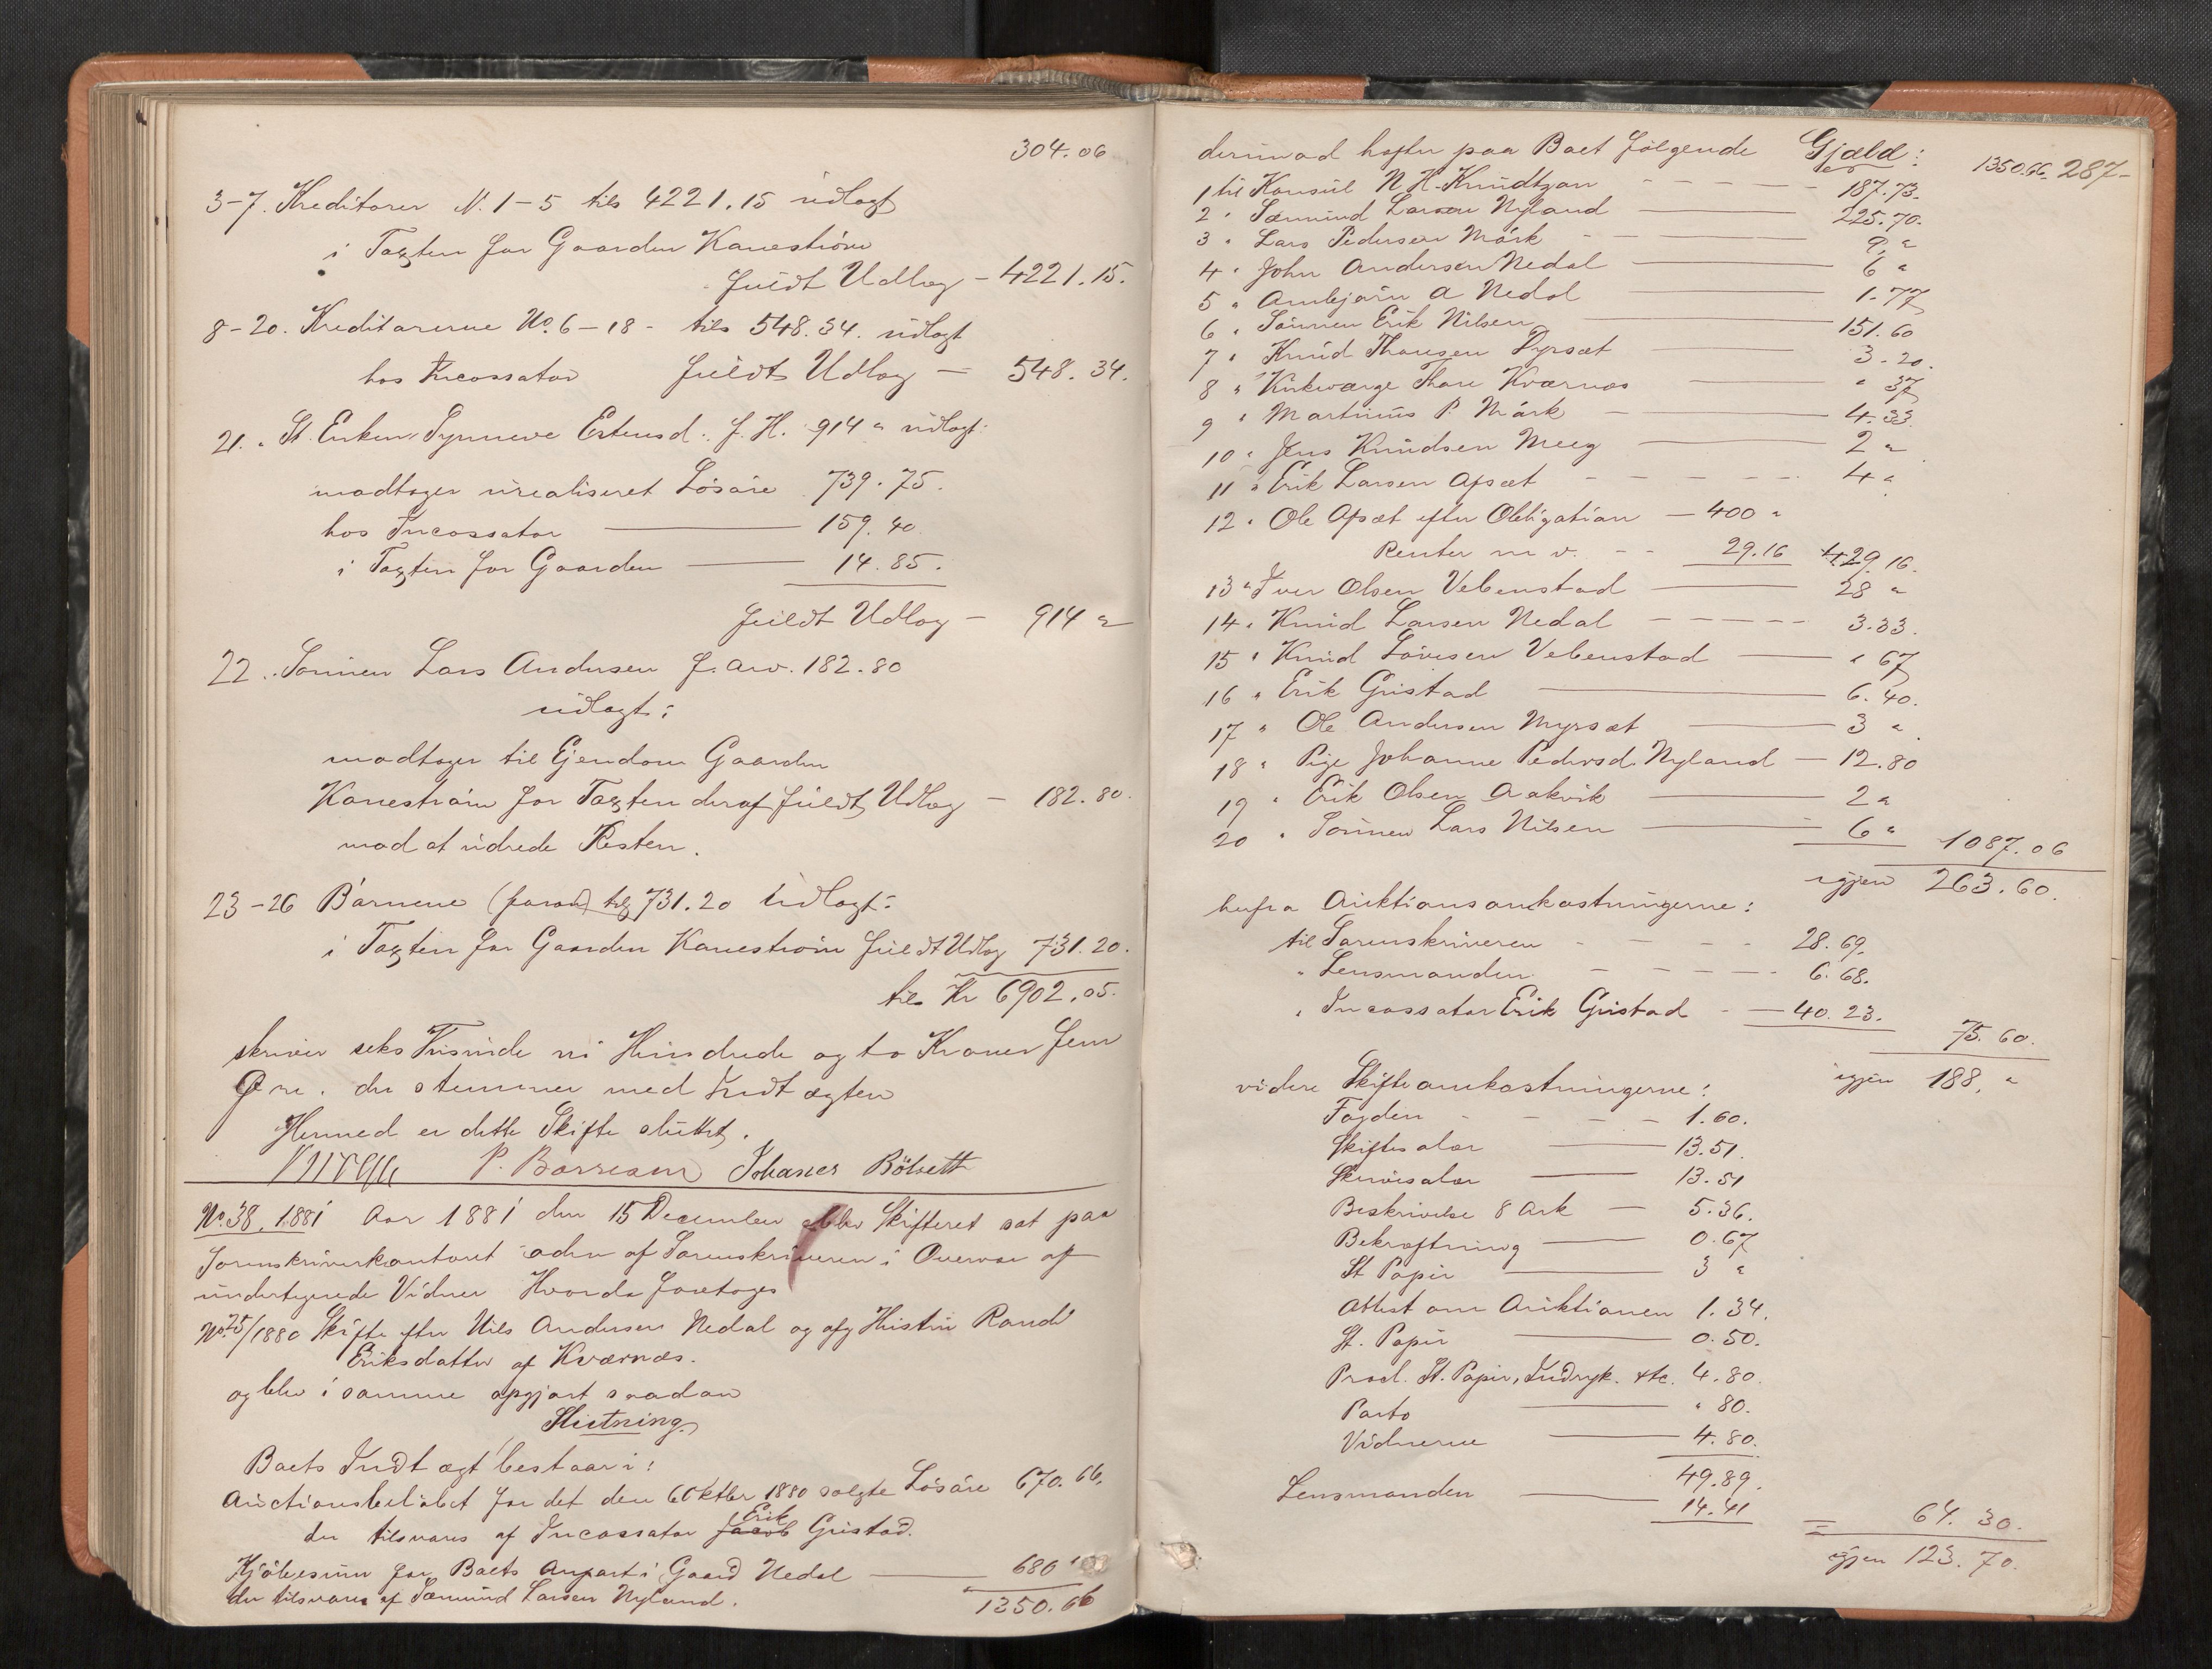 304.06
3-7. Kreditorer N. 1-5 tils 4221.15 udlagt
i Taxten for Gaarden Kanestrøm
fuldt Udlæg - 4221.15.
8-20. Kreditorerne No. 6-18 - tils 548.34. udlagt
hos Incassator fuldt Udlæg - 548.34.
21. St. Enken Synneve Estensd. f. H. 914 " udlagt:
modtager urealiseret Løsøre 739.75.
hos Incassator 159.40
i Taxten for Gaarden 14.85.
fuldt Udlæg - 914 "
22. Sønnen Lars Andersen f. arv. 182.80
udlagt:
modtager til Ejendom Gaarden
Kanestrøm for Taxten deraf fuldt Udlæg - 182.80.
mod at udrede Resten.
23-26 Børnene (foran) tils 731.20 udlagt:
i Taxten for Gaarden Kanestrøm fuldt Udlæg 731.20.
tils Kr 6902.05.
skriver seks Tusinde ni Hundrede og to Kroner fem
Øre. der stemmer med Indtægten
Hermed er dette Skifte sluttet.
Johanes Bölsett
No. 38. 1881 Aar 1881 den 15 December blev Skifteret sat paa
Sorenskriverkontoret adm af Sorenskriveren i Overvær af
undertegnede Vidner Hvorda foretoges
No. 25/1880 Skifte efter Nils Andersen Nedal og afg Hustru Randi
Eriksdatter af Kværnæs.
og blev i samme opgjort saadan
Slutning
Boets Indtægt bestaar i:
Auctionsbeløbet for det den 6 Oktbr 1880 solgte Løsøre 670.66.
der tilsvares af Incassator Jacob Erik Gristad.
Kjøbesum for Boets Anpart i Gaard Nedal 680 "
der tilsvares af Sæmund Larsen Nyland. 1350.66
derimod hefter paa Boet følgende Gjæld: 1350.66. 287-
1 til Konsul N H. Knudtzon 187.73.
2 " Sæmund Larsen Nyland 225.70.
3 " Lars Pedersen Mørk 9. "
4 " John Andersen Nedal 6 "
5 " Arnbjørn A Nedal 1.77
6 " Sønnen Erik Nilsen 151.60
7 " Knud Thoresen Dyrsæt 3.20.
8 " Kirkeværge Thore Kværnæs " 37
9 " Martinus P. Mørk 4.33.
10 " Jens Knudsen Meeg 2 "
11 " Erik Larsen Apsæt 4 "
12 " Ole Apsæt efter Obligation - 400 "
Renter m v. 29.16 429.16.
13 " Iver Olsen Vebenstad 28 "
14 " Knud Larsen Nedal 3.33.
15 " Knud Sørensen Vebenstad " 67
16 " Erik Gristad 6.40.
17 " Ole Andersen Myrsæt 3 "
18 " Pige Johanne Pedersd. Nyland - 12.80
19 " Erik Olsen Aakvik 2 "
20 " Sønnen Lars Nilsen 6 " 1087.06
igjen 263.60.
herfra Auktionsomkostningerne:
til Sorenskriveren 28.69.
" Lensmanden 6.68.
" Incassator Erik Gristad - 40.23. 75.60.
igjen 188. "
videre Skifteomkostningerne:
Fogden 1.60.
Skiftesalær 13.51.
Skriversalær 13.51
Beskrivelse 8 Ark 5.36.
Bekræftning 0.67
St Papir 3 "
Attest om Auktionen 1.34.
St. Papir 0.50.
Procl. St. Papir, Indryk. etc. 4.80.
Porto " 80.
Vidnerne 4.80.
49.89.
Lensmanden 14.41
= 64.30.
igjen 123.70.